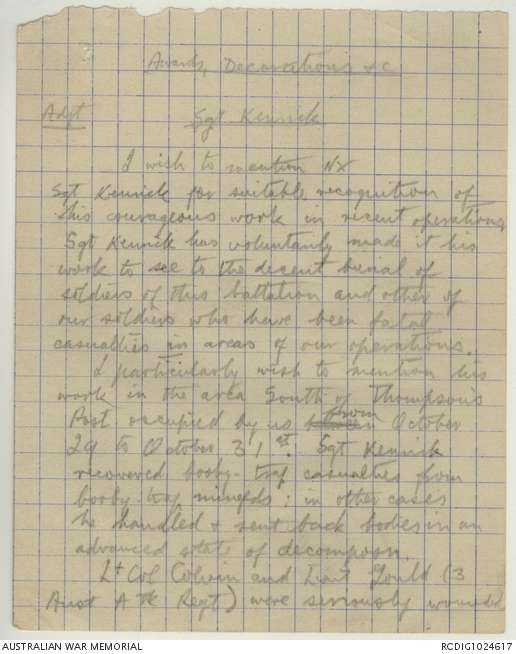 Awards, Decorations & c
Adjt
Sgt Kennick
I wish to mention NX
Sgt Kennick for suitable recognition of
his courageous work in recent operations
Sgt Kennick has voluntarily made it his
work to see to the decent burial of
soldiers of this battalion and other of
our soldiers who have been fatal
casualties in areas of our operations.
I particularly wish to mention his
work in the area South of Thompson's
Post occupied by us from October
29 to October 31st. Sgt Kennick
recovered booby-trap casualties from
booby-trap minefds; in other cases
he handled & sent back bodies in an
advanced state of decomposn.
Lt Col Colvin and Lieut Gould (3
Aust A Tk Regt) were seriously wounded
AUSTRALIAN WAR MEMORIAL
RCDIG1024617